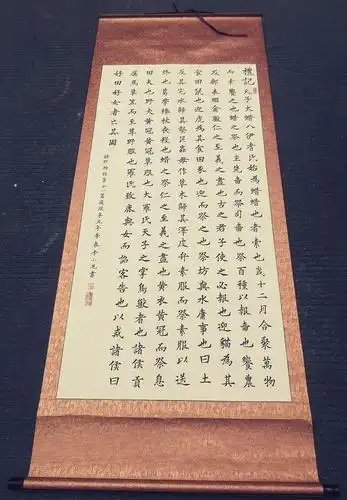 禮記天子大蜡八伊耆氏始為蜡蜡也者索也歲十二月合聚萬物
而索饗之也蜡之祭也主先嗇而祭司嗇也祭百種以報嗇也饗農
及郵表畷禽獸仁之至義之盡也古之君子使之必報也迎貓為其
食田鼠也迎虎為其食田豕也迎而祭之也祭坊與水庸事也曰土
反其宅水歸其壑昆蟲毋作草木歸其澤皮弁素服而祭素服以送
終也葛帶榛杖喪殺也蜡之祭仁之至義之盡也黃衣黃冠而祭息
田夫也野夫黃冠黃冠草服也大羅氏天子之掌鳥獸者也諸侯貢
屬焉草笠而至尊野服也羅氏致鹿與女而詔客告也以戒諸侯曰
好田好女者亡其國
錄郊特牲第十一篇歲次辛丑年季春李小光書